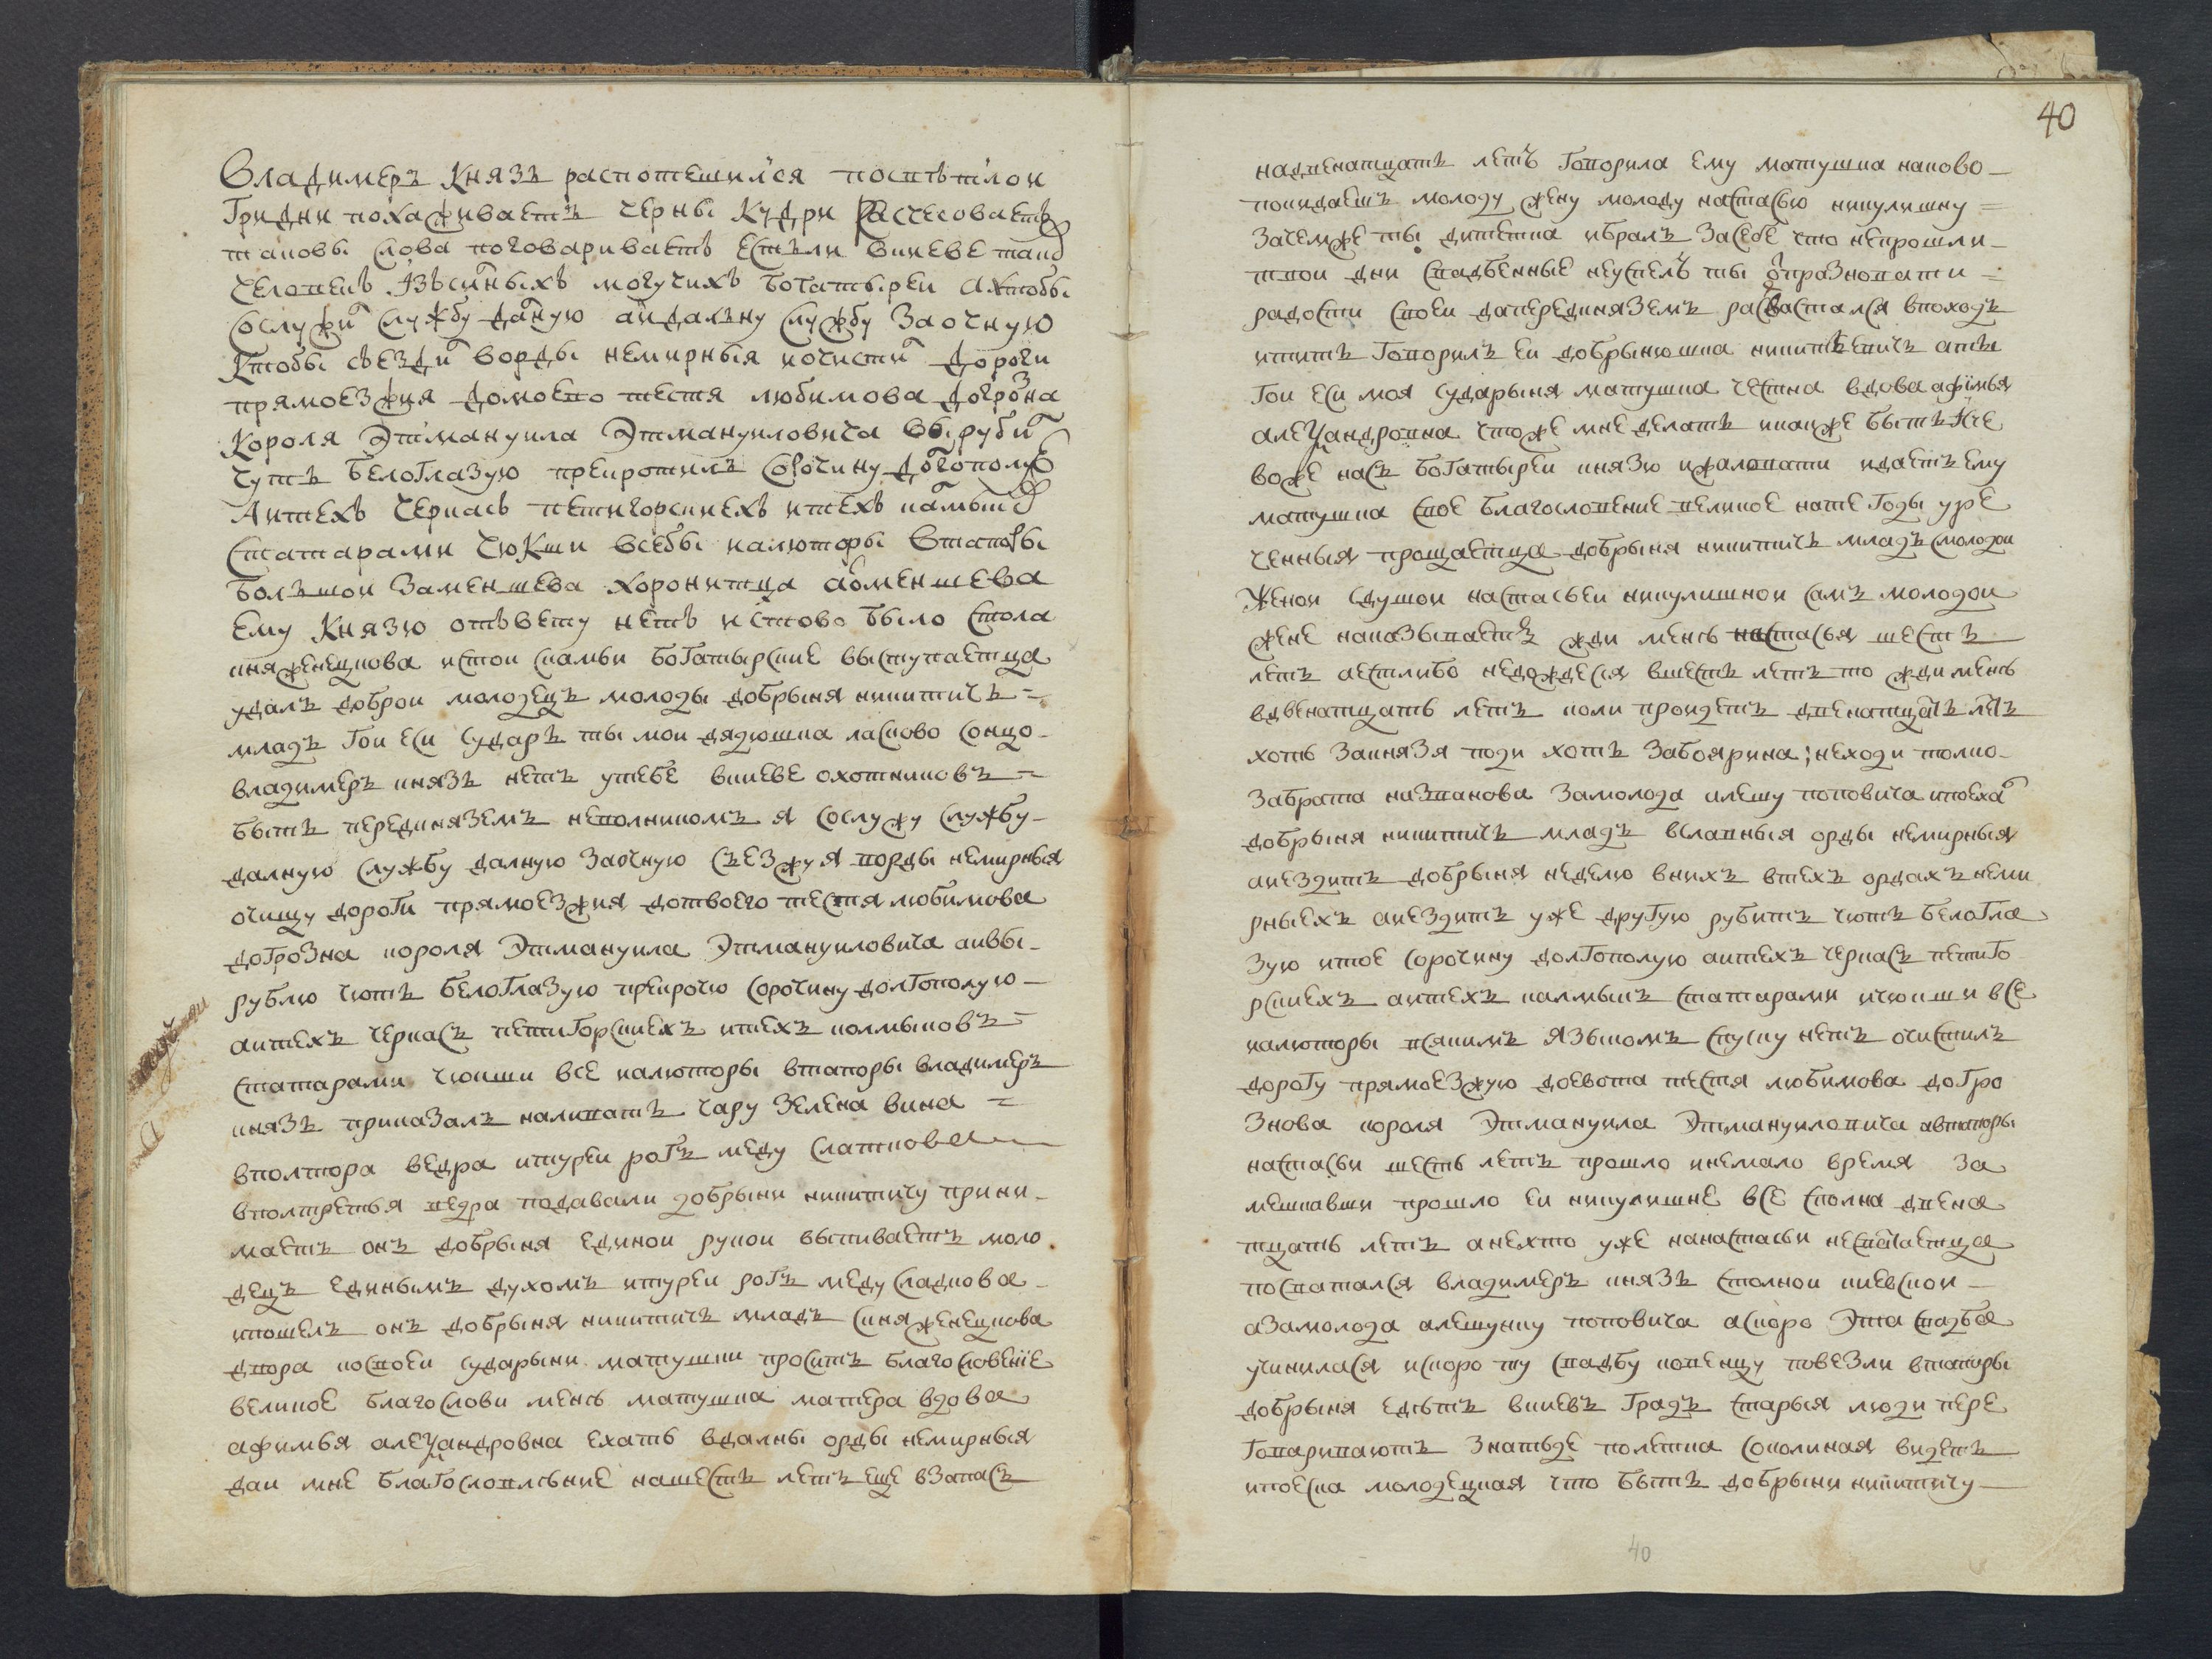 Владимеръ Князь распотешился посветлои
Гридни похаживаетъ черны Кудри Расчесоваетъ
таковы слова поговариваетъ естьли вкиеве такд
человекъ ізъсилныхъ могучихъ богатыреи Ахтобы
сослужи службу далную аидалну службу заочную
Ктобы съезди ворды немирныя ичисти дороги
прямоезжия домоево тестя любимова догрозна
Короля Этмануила Этмануиловича вырубил
чуть белоглазую прекротилъ сорочину долгополую
Аитехъ черкасъ петигорскиехъ итехъ калмык
статарами чюкши всебы иалюторы втапоры
Большои заменшева хоронитца аоменшева
ему Князю ответу нетъ истово было стола
княженецкова истои скамьи богатырские выступаетца
удалъ доброи молодецъ молоды добрыня никитичь
младъ гои еси сударь ты мои дядюшка ласково сонцо
владимеръ князь нетъ утебе вкиеве охотниковъ
быть передкняземъ неволникомъ я сослужу службу
далную службу далную заочную съезжу я ворды немирныя
очищу дороги прямоезжия дотвоего тестя любимова
догрозна короля Этмануила Этмануиловича аивы
рублю чють белоглазую прекрочю сорочину долгополую
аитехъ черкасъ петигорскиехъ итехъ колмыковъ
статарами чюкши все иалюторы втапоры владимеръ
князь приказалъ наливать чару зелена вина
вполтора ведра итуреи рогъ меду слаткова
вполтретья ведра подавали добрыни никитичу прини
маетъ онъ добрыня единои рукои выпиваетъ моло
децъ единымъ духомъ итуреи рогъ меду сладкова
ипошелъ онъ добрыня никитичь младъ скняженецкова
двора косвоеи сударыни матушки проситъ благословеніе
великое благослови менѣ матушка матера вдова
афимья алеѯандровна ехать вдалны орды немирныя
даи мне благословлѣние нашесть летъ еще взапасъ
40
надвенатцать летъ говорила ему матушка наково
покидаешь молоду жену молоду настасью никулишну
зачемже ты дитетка ибралъ засебе что непрошли
твои дни свадбенные неуспелъ ты отпразновати
радости своеи дапередкняземъ расвасталься впоходъ
итить говорилъ еи добрынюшка никитьевичь аты
гои еси моя сударыня матушка честна вдова афимья
алеѯандровна чтоже мне делать икакже быть исче
воже насъ богатыреи князю ижаловати идаетъ ему
матушка свое благословение великое нате годы уре
ченныя прощаетца добрыня никитичь младъ смолодои
женои сдушои настасьеи никулишнои самъ молодои
жене наказываетъ жди менѣ настасья шесть
летъ аестлибо недождеся вшесть летъ то жди менѣ
вдвенатцать летъ коли проидетъ двенатцать летъ
хоть закнязя поди хоть забоярина; неходи толко
забрата названова замолода алешу поповича ипоеха
добрыня никитичь младъ вславныя орды немирныя
аиездитъ добрыня неделю вних втехъ ордахъ неми
рныехъ аиездитъ уже другую рубитъ чють белогла
зую итое сорочину долгополую аитехъ черкасъ петиго
рскиехъ аитехъ калмыкъ статарами ичюкши все
иалюторы всякимъ языкомъ спуску нетъ очистилъ
дорогу прямоезжую доевота тестя любимова догро
знова короля Этмануила Этмануиловича автапоры
настасьи шесть летъ прошло инемало время за
мешкавши прошло еи никулишне все сполна двена
тцать летъ анехто уже нанастасьи несватаетца
посватался владимеръ князь столнои киевскои
азамолода алешунку поповича аскоро Эта свадба
учинилася искоро ту свадбу ковенцу повезли втапоры
добрыня едѣтъ вкиевъ градъ старыя люди пере
говариваютъ знатьде полетка соколиная видеть
ипоеска молодецкая что быть добрыни никитичу
40